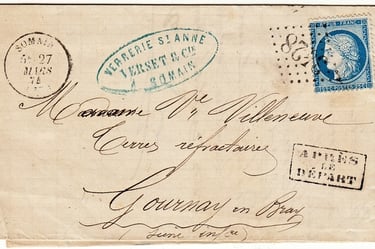 SOMAIN
5E 27
MARS
74
VERRERIE STANNE
VERSET & CIE
SOMAIN
28
Madame Ve Villeneuve
Terres réfractaires
APRÈS
LE
DÉPART
Gournay en Bray
(Seine Infre)